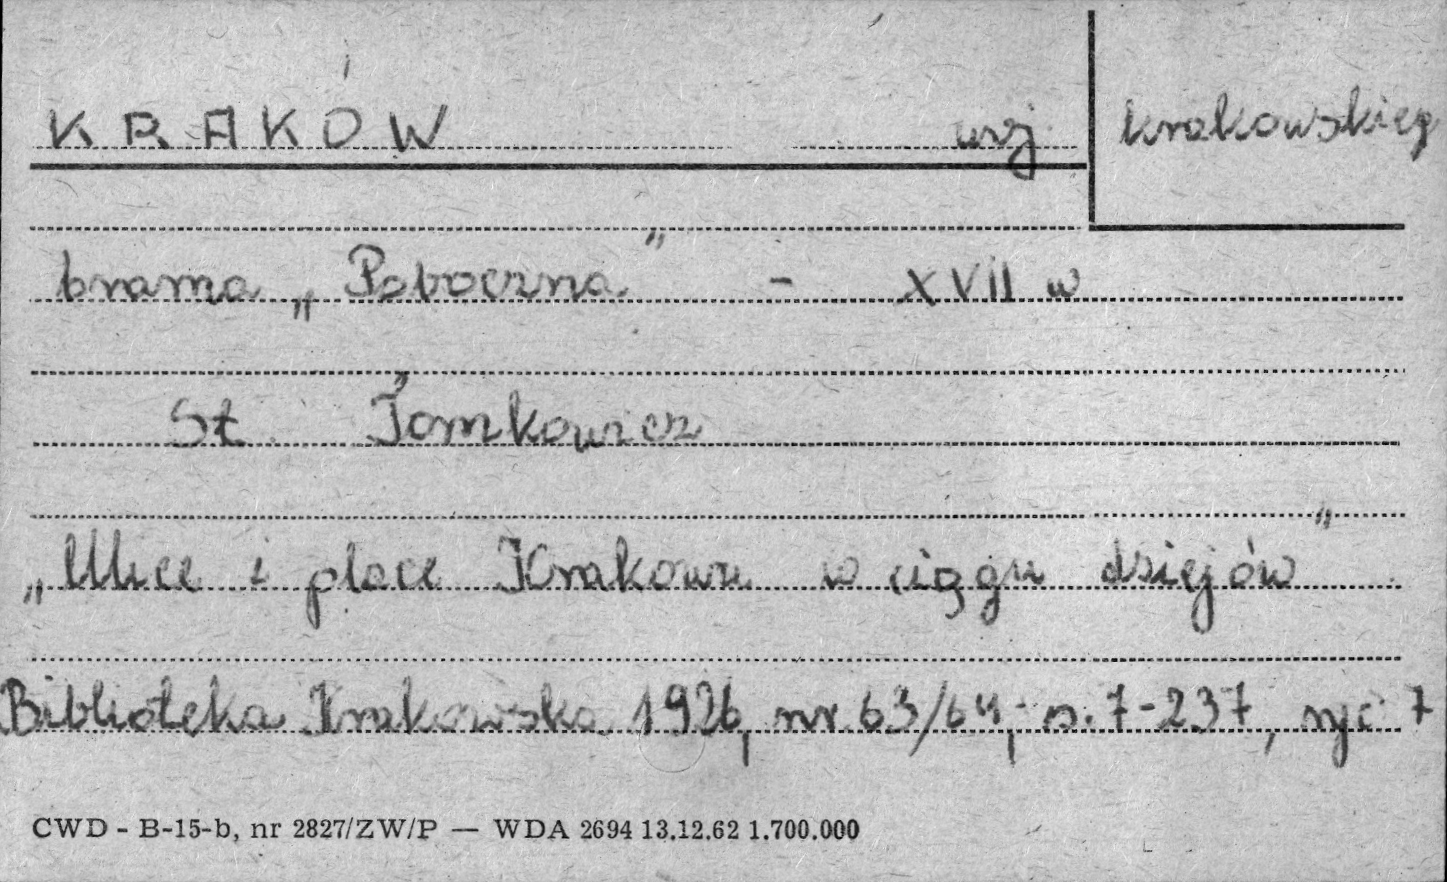 KRAKÓW woj krakowskieg
brama „Poboczna" - XVII w
St. Tomkowicz
„Ulice i place Krakowa w ciągu dziejów"
Biblioteka Krakowska 1926, nr 63/64, s. 7-237, ryc 7
CWD - B-15-b, nr 2827/ZW/P — WDA 2694 13.12.62 1.700.000